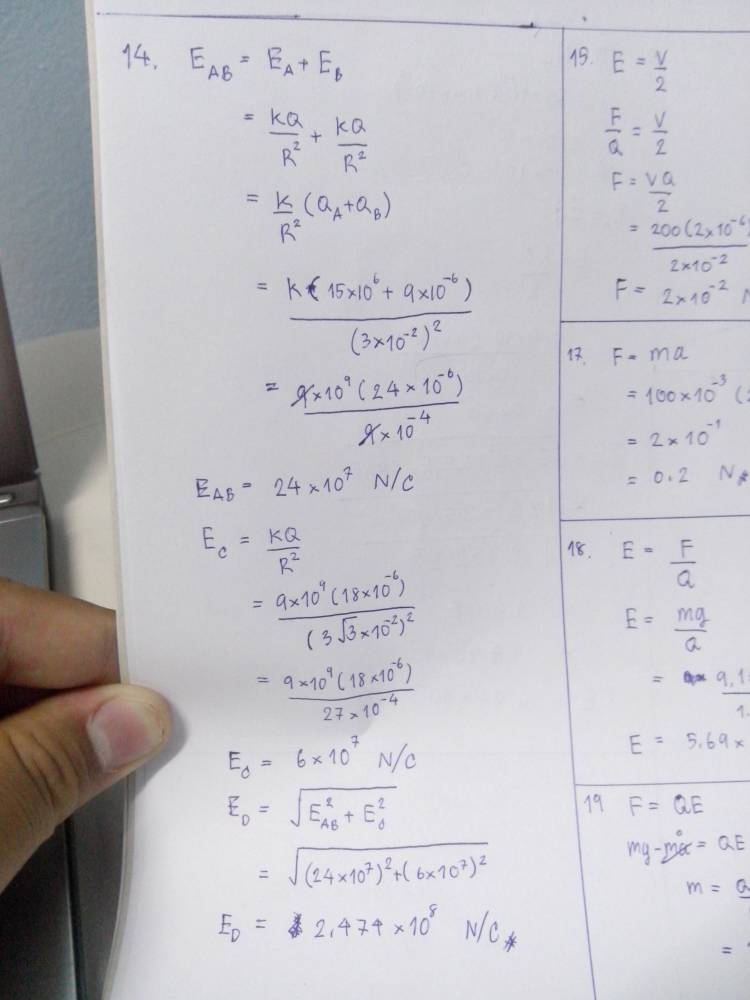 14. E_AB = E_A + E_B
= KQ/R² + KQ/R²
= K/R² (Q_A + Q_B)
= K(15×10⁶ + 9×10⁻⁶) / (3×10⁻²)²
= 9×10⁹ (24×10⁻⁶) / 9×10⁻⁴
E_AB = 24×10⁷ N/C
E_C = KQ/R²
= 9×10⁹ (18×10⁻⁶) / (3√3×10⁻²)²
= 9×10⁹ (18×10⁻⁶) / 27×10⁻⁴
E_C = 6×10⁷ N/C
E_D = √(E_AB² + E_C²)
= √((24×10⁷)² + (6×10⁷)²)
E_D = 2.474×10⁸ N/C
15. E = V/2
F/Q = V/2
F = VQ/2
= 200(2×10⁻⁶) / 2×10⁻²
F = 2×10⁻² N
17. F = ma
= 100×10⁻³ (2
= 2×10⁻¹
= 0.2 N
18. E = F/Q
E = mg/Q
= 9.1 / 1.
E = 5.69×
19 F = QE
mg - ma = QE
m = Q
=